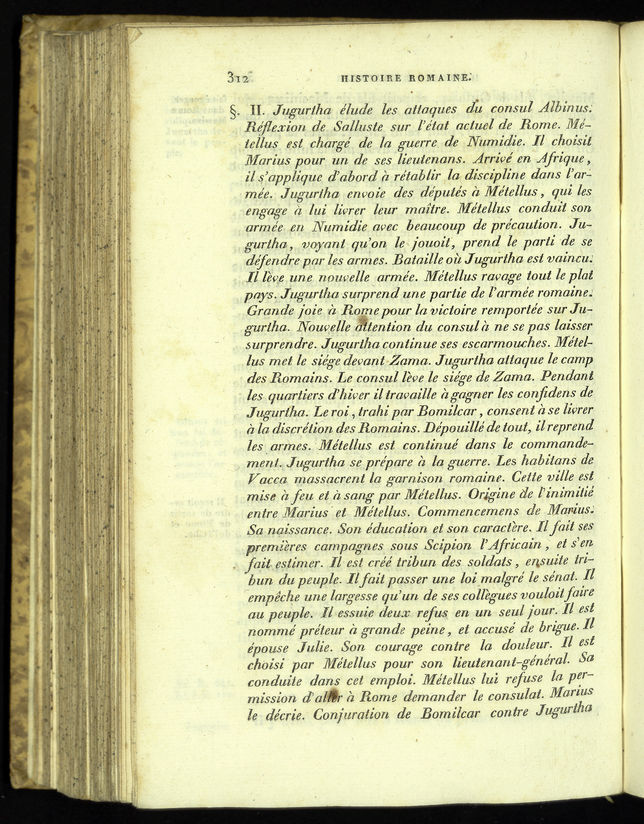 312 HISTOIRE ROMAINE.
§. II. Jugurtha élude les attaques du consul Albinus.
Réflexion de Salluste sur l'état actuel de Rome. Mé-
tellus est chargé de la guerre de Numidie. Il choisit
Marius pour un de ses lieutenans. Arrivé en Afrique,
il s'applique d'abord à rétablir la discipline dans l'ar-
mée. Jugurtha envoie des députés à Métellus, qui les
engage à lui livrer leur maître. Métellus conduit son
armée en Numidie avec beaucoup de précaution. Ju-
gurtha, voyant qu'on le jouoit, prend le parti de se
défendre par les armes. Bataille où Jugurtha est vaincu.
Il lève une nouvelle armée. Métellus ravage tout le plat
pays. Jugurtha surprend une partie de l'armée romaine.
Grande joie à Rome pour la victoire remportée sur Ju-
gurtha. Nouvelle attention du consul à ne se pas laisser
surprendre. Jugurtha continue ses escarmouches. Métel-
lus met le siége devant Zama. Jugurtha attaque le camp
des Romains. Le consul lève le siége de Zama. Pendant
les quartiers d'hiver il travaille à gagner les confidens de
Jugurtha. Le roi, trahi par Bomilcar, consent à se livrer
à la discrétion des Romains. Dépouillé de tout, il reprend
les armes. Métellus est continué dans le commande-
ment. Jugurtha se prépare à la guerre. Les habitans de
Vacca massacrent la garnison romaine. Cette ville est
mise à feu et à sang par Métellus. Origine de l'inimitié
entre Marius et Métellus. Commencemens de Marius.
Sa naissance. Son éducation et son caractère. Il fait ses
premières campagnes sous Scipion l'Africain, et s'en
fait estimer. Il est créé tribun des soldats, ensuite tri-
bun du peuple. Il fait passer une loi malgré le sénat. Il
empêche une largesse qu'un de ses collègues vouloit faire
au peuple. Il essuie deux refus en un seul jour. Il est
nommé préteur à grande peine, et accusé de brigue. Il
épouse Julie. Son courage contre la douleur. Il est
choisi par Métellus pour son lieutenant-général. Sa
conduite dans cet emploi. Métellus lui refuse la per-
mission d'aller à Rome demander le consulat. Marius
le décrie. Conjuration de Bomilcar contre Jugurtha